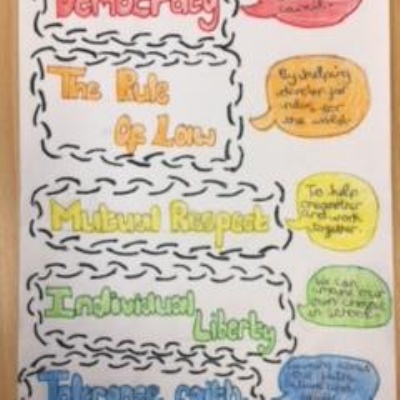 Democracy
council.
The Rule
Of Law
By helping
develop for
rules for
the world.
Mutual Respect
To help
and work
together.
Individual
Liberty
We can
make our
own choices
in school.
Tolerance